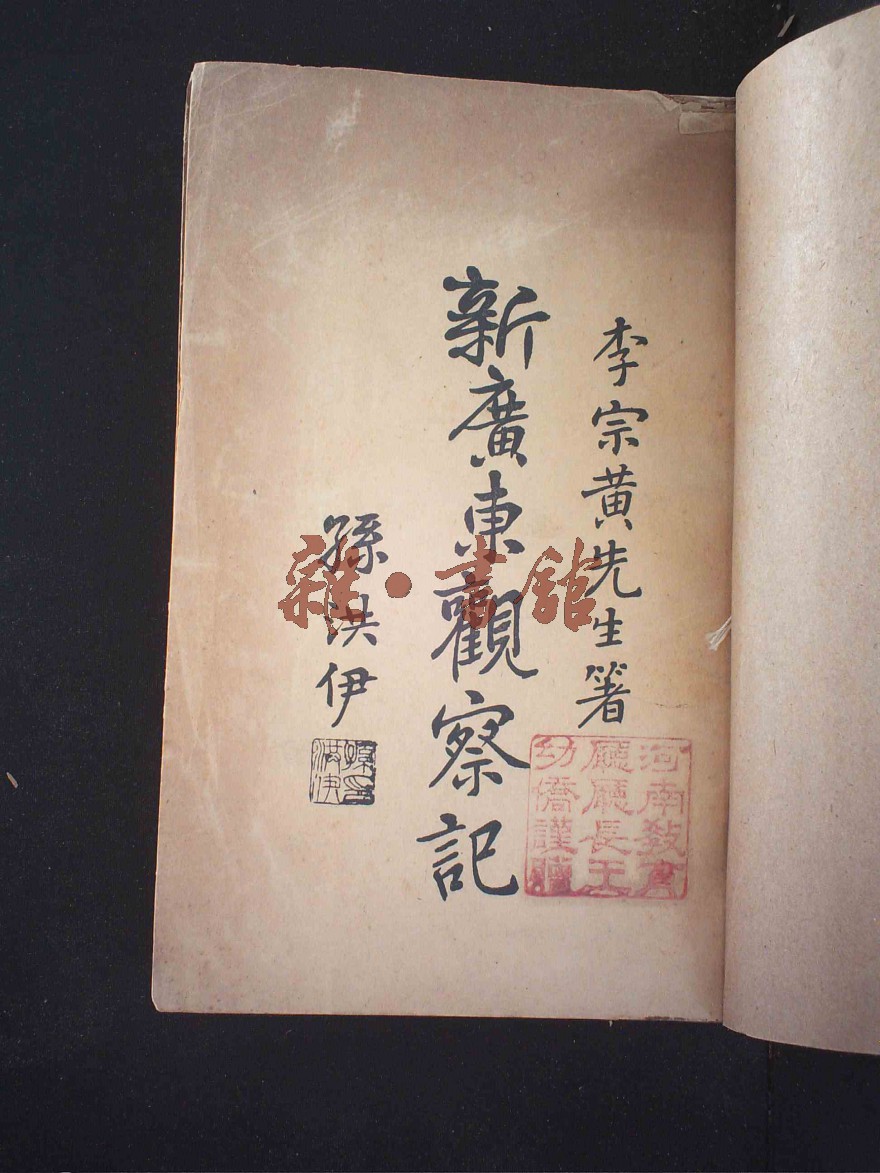 李宗黄先生著
新廣東觀察記
孫洪伊
河南教育
廳廳長王
幼僑謹贈
雜·書館